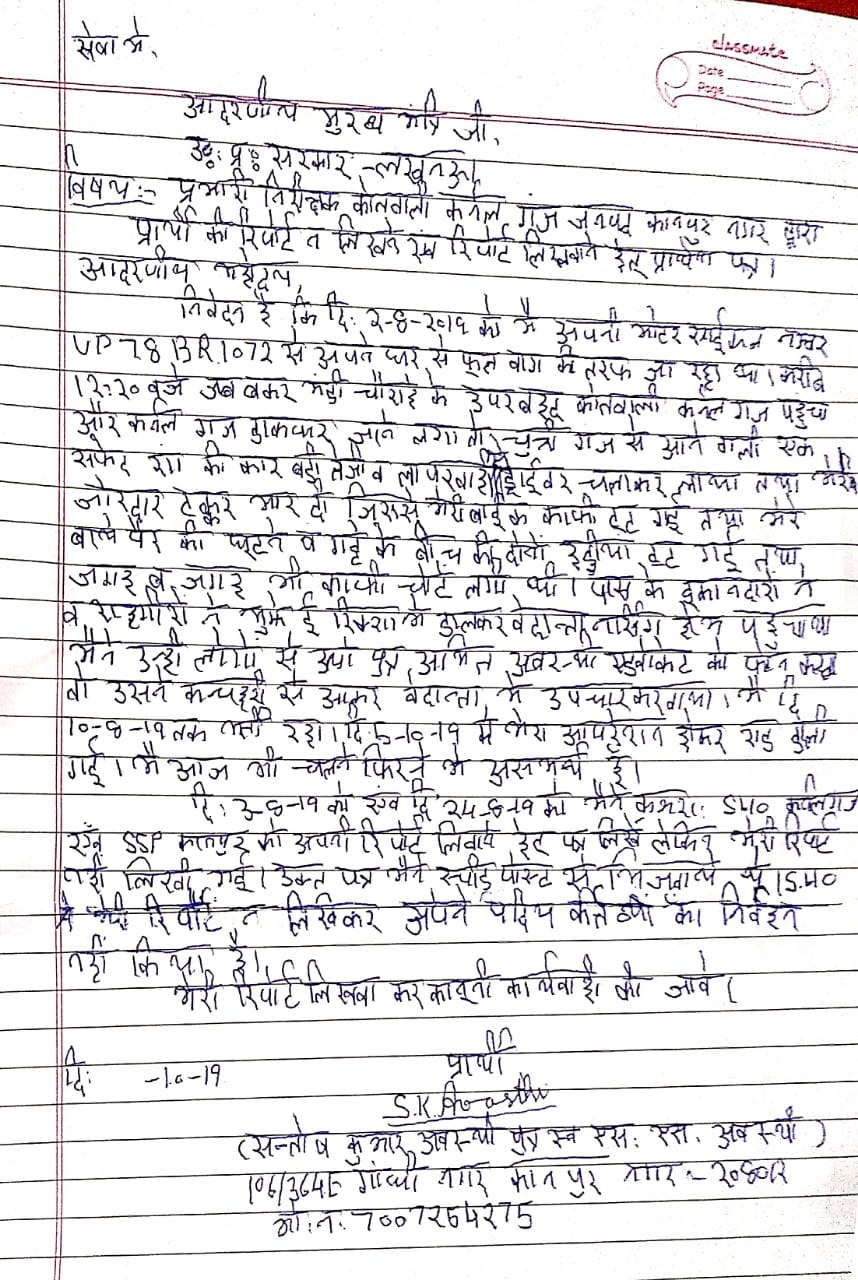 classmate
Date
Page
सेवा मे,
आदरणीय मुख्य मंत्रि जी,
उ॰ प्र॰ सरकार, लखनऊ
विषय:- प्रभारी निरीक्षक कोतवाली कर्नल गंज जनपद कानपुर नगर द्वारा
प्रार्थी की रिपोर्ट न लिखने एवं रिपोर्ट लिखवाने हेतु प्रार्थना पत्र।
आदरणीय महोदय,
निवेदन है कि दि: को मै अपनी मोटर साईकिल नम्बर
UP 78 BR 1072 से अपने घर से फूल बाग की तरफ जा रहा था। करीब
12:20 बजे जब बकर मंडी चौराहे के उपर कोतवाली कर्नल गंज पहुंचा
और कर्नल गंज होकर जाने लगा तो चुन्नी गंज से आने वाली एक
सफेद रंग की कार बड़ी तेजी व लापरवाही ड्राईवर चलाकर लाया तथा
जोरदार टक्कर मार दी जिससे मेरी बाईक काफी टूट गई तथा मेरे
बायें पैर की घुटने व गट्टे के बीच की दोनों हड्डीयां टूट गई तथा
जगह ब जगह भी काफी चोटें लगी थी। पास के दूकानदारों ने
व राहगीरों ने मुझे ई रिक्शा मे डालकर वेदान्ता नर्सिंग होम पहुंचाया
मैने उन्ही लोगो से अपने पुत्र अमित अवस्थी एडवोकेट को फोन
तो उसने कचहरी से आकर वेदान्ता मे उपचार करवाया। मै दि
10-8-19 तक भर्ती रहा। दि: 5-10-19 मे मेरा आपरेशन होकर राड डाली
गई। मै आज भी चलने फिरने मे असमर्थ हूं।
दि: 3-8-19 को एवं दि 24-8-19 को मैने क्रमश: SHO कर्नलगंज
एवं SSP कानपुर को अपनी रिपोर्ट लिखाने हेतु पत्र लिखे लेकिन मेरी रिपोर्ट
नही लिखी गई। उक्त पत्र मैने स्पीड पोस्ट से भिजवाये थे। SHO
ने मेरी रिपोर्ट न लिखकर अपने पदिय कर्तव्यों का निर्वहन
नहीं किया है।
मेरी रिपोर्ट लिखवा कर कानूनी कार्यवाही की जावे।
दि: -10-19
प्रार्थी
S.K. Awasthi
(सन्तोष कुमार अवस्थी पुत्र स्व एस. एस. अवस्थी)
106/364E गांधी नगर कानपुर नगर - 208012
मो: न: 7007264275